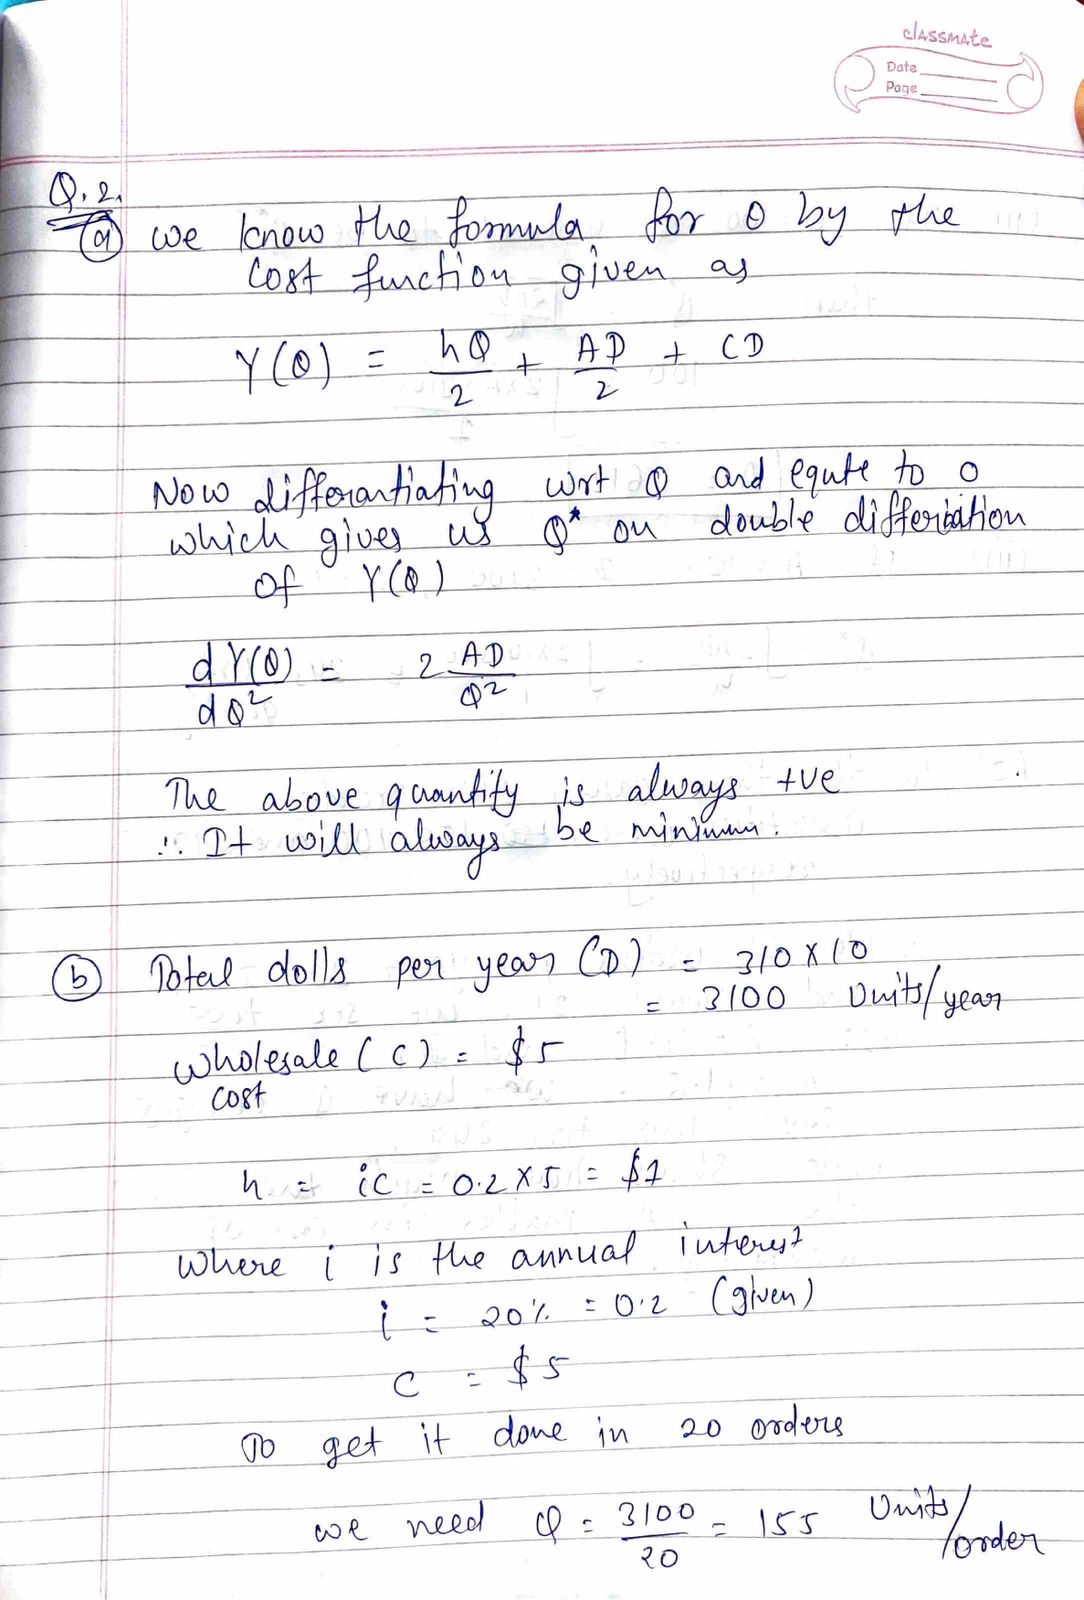 classmate
Date
Page
Q.2.
(a) we know the formula for θ by the
cost function given as
Y(θ) = hQ/2 + AD/2 + CD
Now differantiating wrt Q and equte to 0
which gives us Q* on double differiation
of Y(Q)
dY(Q)/dQ² = 2 AD/Q²
The above quantity is always +ve
∴ It will always be minimum.
(b) Total dolls per year (D) = 310 X 10
= 3100 Units/year
Wholesale (C) = $5
cost
h = ic = 0.2 X 5 = $1
Where i is the annual interest
i = 20% = 0.2 (given)
C = $5
To get it done in 20 orders
we need Q = 3100/20 = 155 Units/order